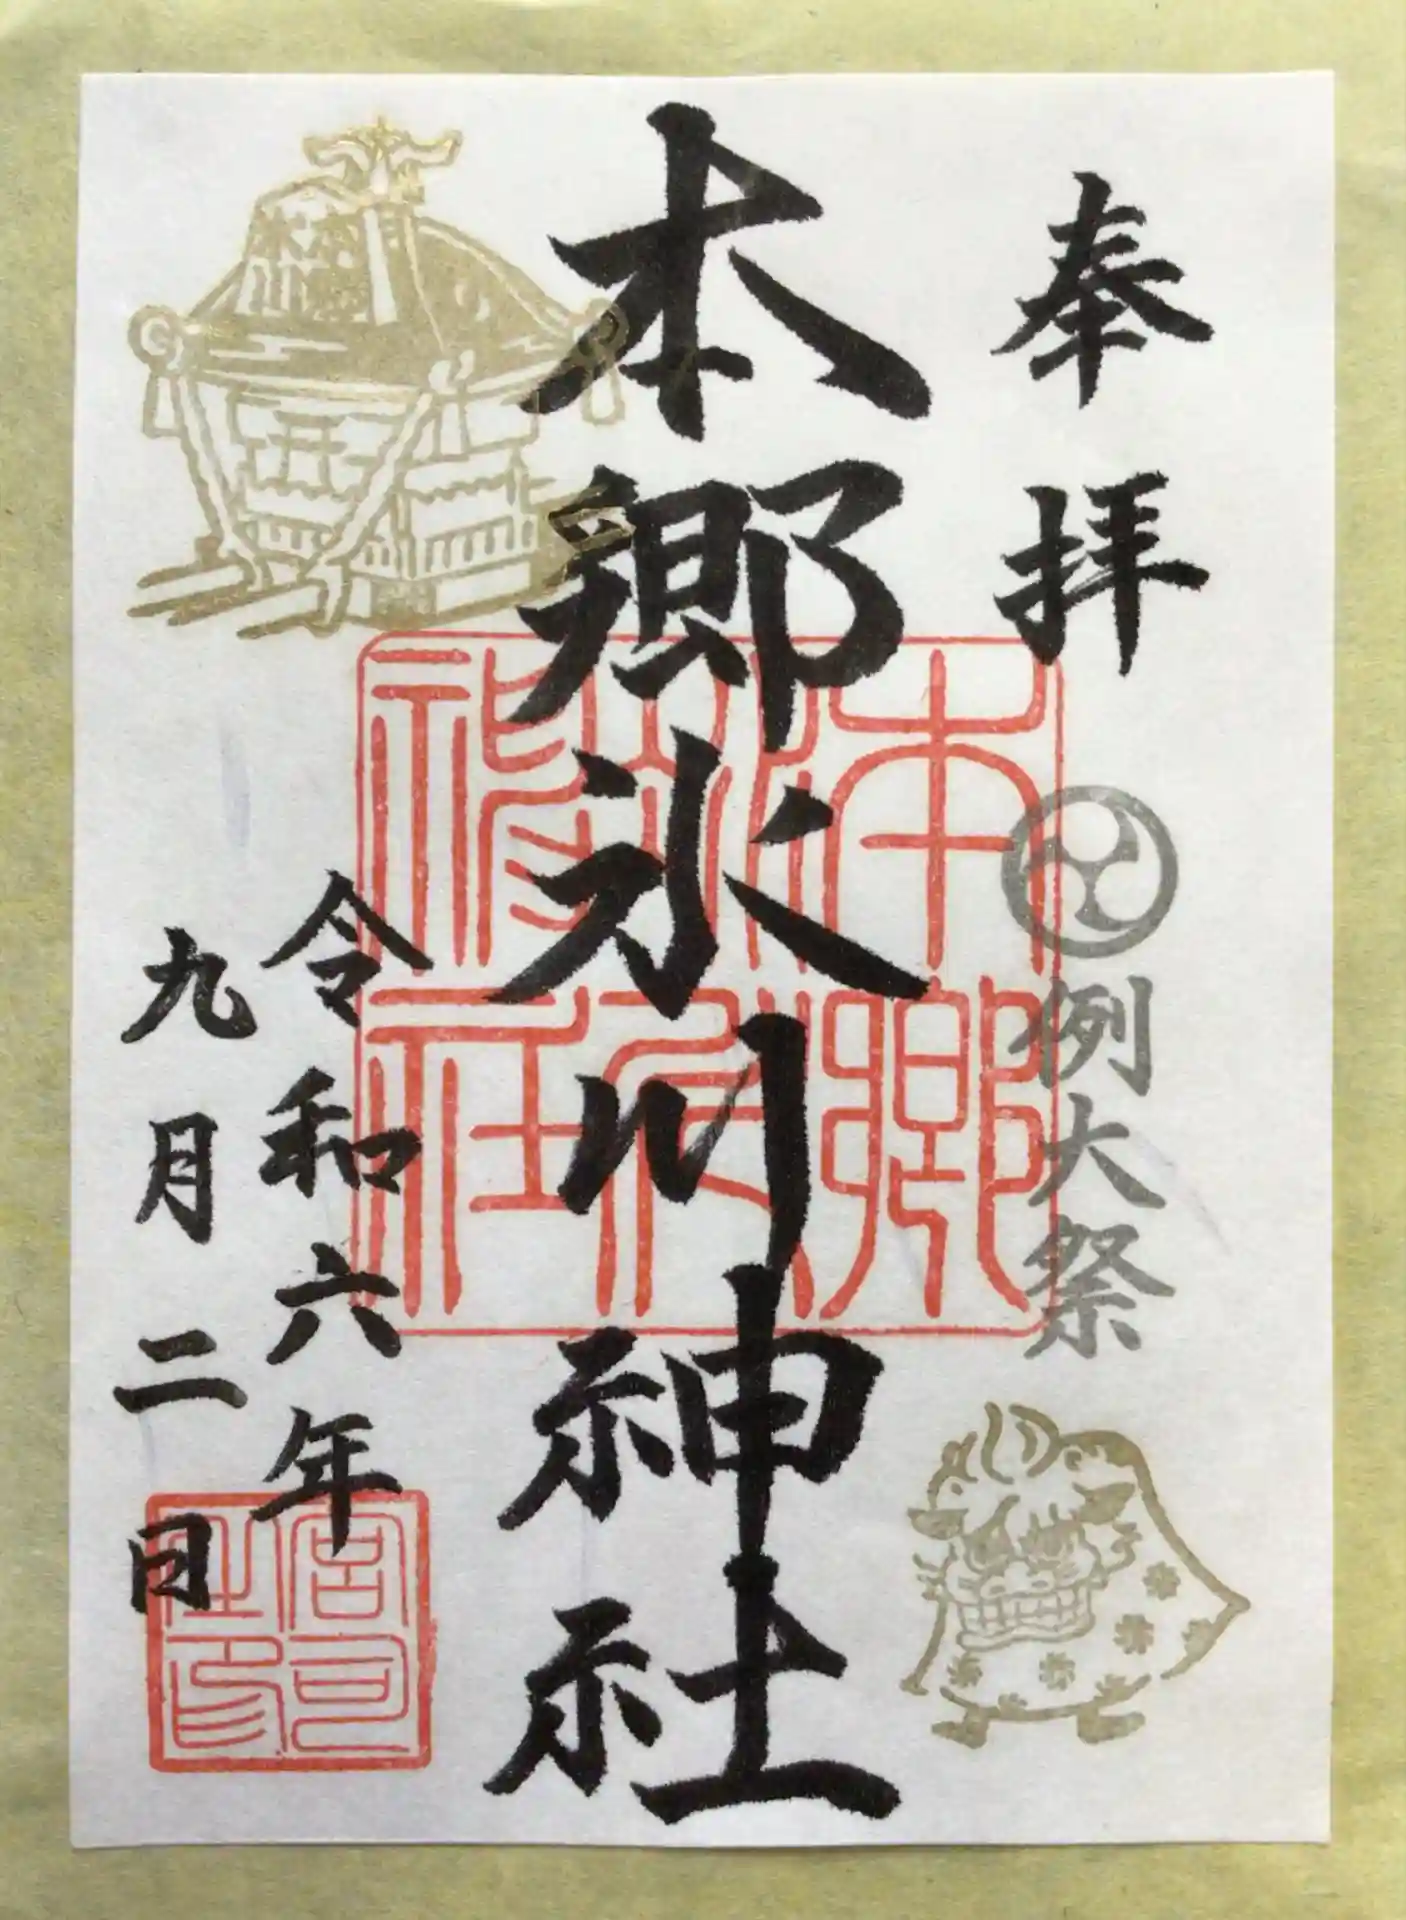 奉拝
例大祭
本郷氷川神社
本郷
氷川
神社
令和六年
九月二日
宮司
之印